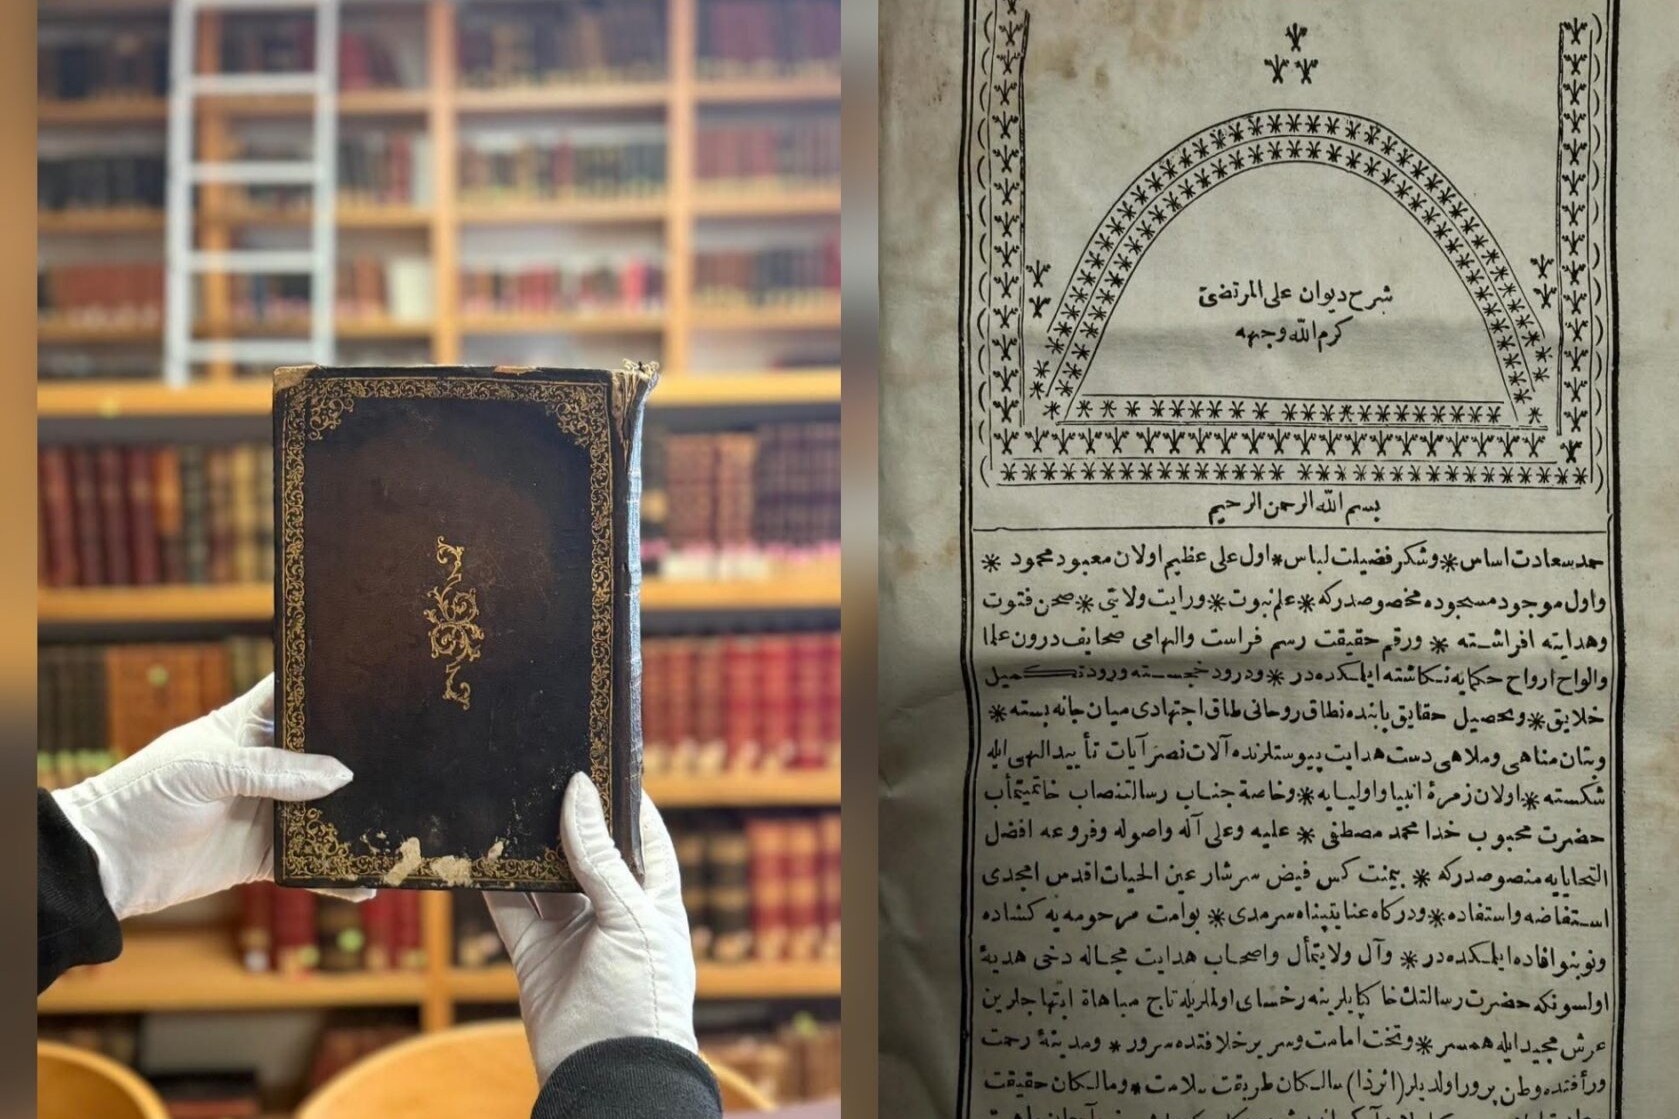 شرح ديوان على المرتضى
كرم الله وجهه
بسم الله الرحمن الرحيم
حمد سعادت اساس * وشكر فضيلت لباس * اول على عظيم اولان معبود محمود *
واول موجود مسجوده مخصوصدركه * علم نبوت * ورايت ولايتى * صحن فتوت
وهدايته افراشته * ورقم حقيقت رسم فراست والهامى صحايف درون علما
والواح ارواح حكمايه نكاشته ايلمكده در * ودرود خجسته ورود تكميل
خلايق * وتحصيل حقايق بابنده نطاق روحانى طاق اجتهادى ميان جانه بسته *
وبتان مناهى وملاهى دست هدايت پيوستلرنده آلات نصر آيات تأييد الهى ايله
شكسته * اولان زمرۀ انبيا واوليايه * وخاصة جناب رسالتنصاب خاتميتمأب
حضرت محبوب خدا محمد مصطفى * عليه وعلى آله واصوله وفروعه افضل
التحايايه منصوصدركه * يمنت كس فيض سرشار عين الحيات اقدس امجدى
استفاضه واستفاده * ودركاه عنايتپناه سرمدى * بو امت مرحومه يه كشاده
ونوبنو افاده ايلمكده در * وآل ولايتمأل واصحاب هدايت مجاله دخى هديۀ
اولسونكه حضرت رسالتك خاكپايلرينه رخساى اولملريله تاج مباهاة ابتهاجلرين
عرش مجيد ايله همسر * وتخت امامت وسرير خلافتده سرور * ومدينۀ رحمت
ورأفتده وطن پرور اولديلر (اثرذا) سالكان طريقت سلامت * ومالكان حقيقت